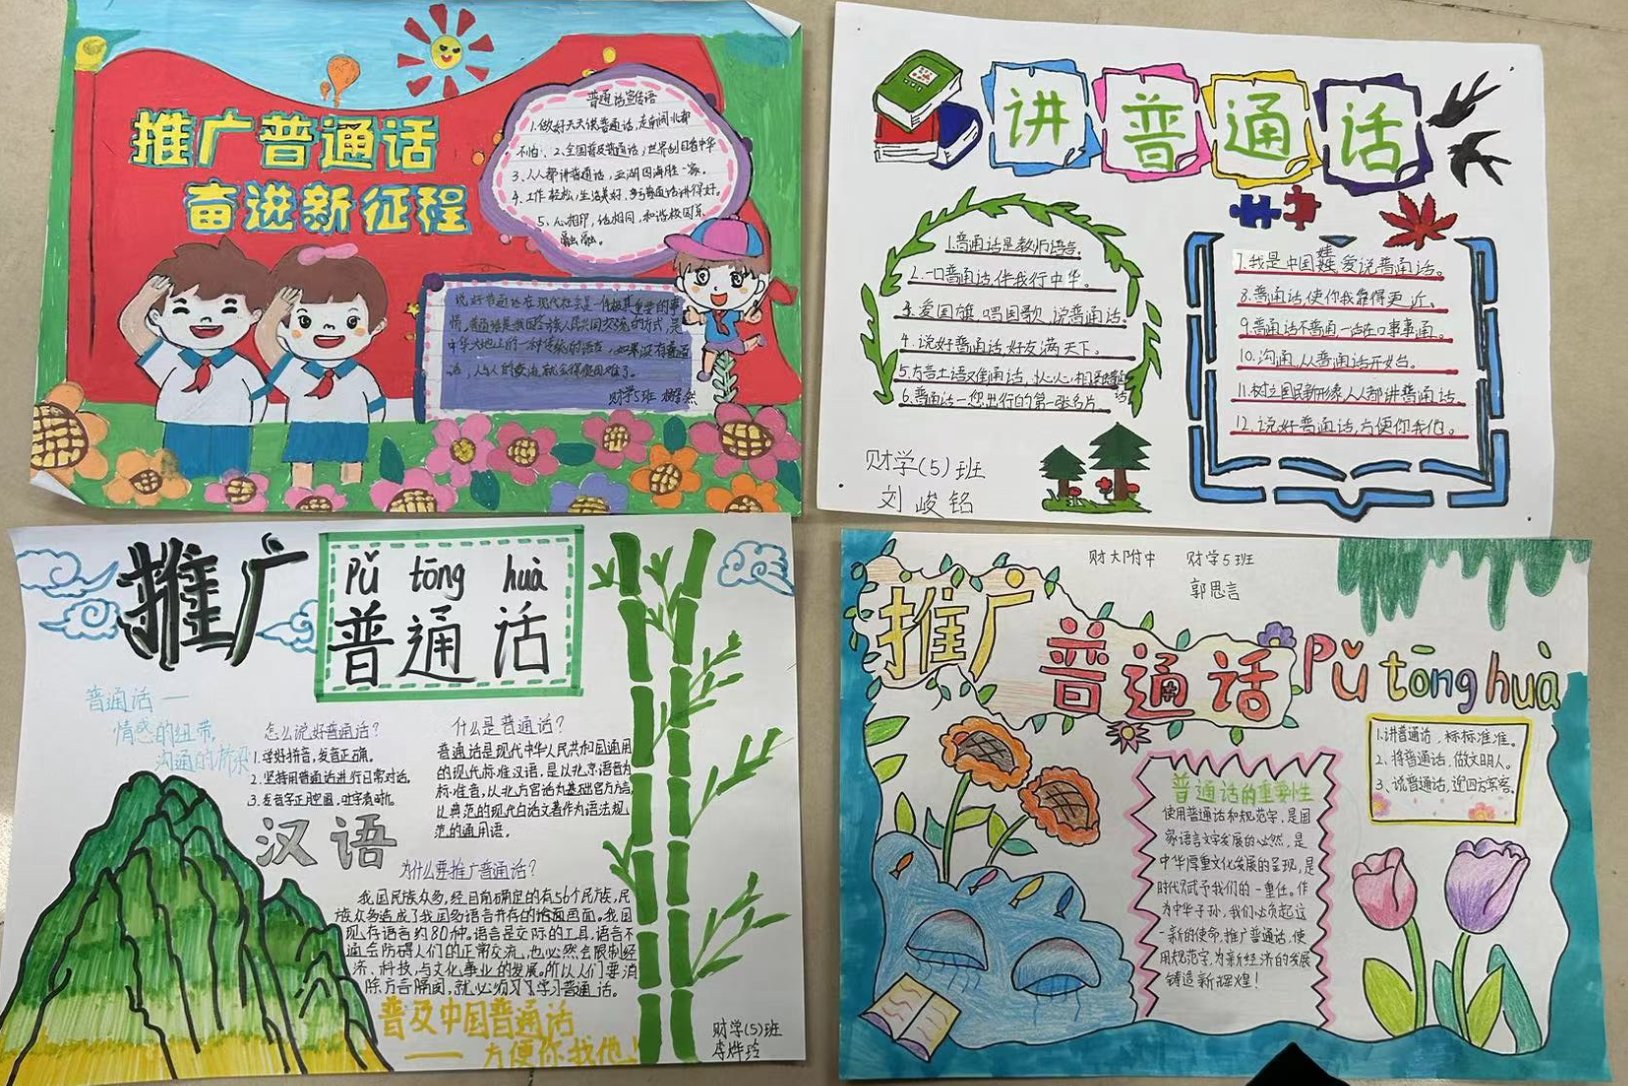 推广普通话
奋进新征程
普通话宣传语
1.做好天天说普通话,走南闯北都
不怕、2.全国普及普通话,世界刮目看中华
3、人人都讲普通话,五湖四海胜一家。
4.工作轻松,生活美好,多亏普通话讲得好。
5、心相印,话相同,和谐校园系
融融。
说好普通话在现代社会是一件极其重要的事
情。普通话是我国各族人民共同交流的方式,是
中华大地上的一种传统的语言,如果没有普通
话,人与人的交流就会很困难了。
财学5班
讲普通话
1.普通话是教师语言.
2.一口普通话,伴我行中华。
3.爱国旗,唱国歌,说普通话。
4.说好普通话,好友满天下。
5.方言土语难通话,心心相印
6.普通话一您出行的第一张名片
7.我是中国娃,爱说普通话。
8.普通话,使你我靠得更近。
9.普通话不普通一话在口事事通。
10.沟通,从普通话开始。
11.树立国民新形象人人都讲普通话。
12.说好普通话,方便你我他。
财学(5)班
刘峻铭
推广
Pǔ tōng huà
普通话
普通话一
情感的纽带,
沟通的桥梁
怎么说好普通话?
1.学好拼音,发音正确。
2.坚持用普通话进行日常对话。
3.发音字正腔圆,吐字有力。
什么是普通话?
普通话是现代中华人民共和国通用
的现代标准汉语,是以北京语音为
标准音,以北方官话为基础官方方言,
以典范的现代白话文著作为语法规
范的通用语。
汉语
为什么要推广普通话?
我国民族众多,经目前确定的有56个民族,民
族众多造成了我国多语言并存的语言画面。我国
现存语言约80种。语言是交际的工具,语言不
通会防碍人们的正常交流,也必然会限制经
济、科技,与文化,事业的发展。所以人们要消
除方言隔阂,就必须学习普通话。
普及中国普通话
——方便你我他!
财学(5)班
李烨玲
财大附中 财学5班
郭思言
推广
普通话
Pǔ tōng huà
1.讲普通话,标标准准。
2、将普通话,做文明人。
3、说普通话,迎四方宾客。
普通话的重要性
使用普通话和规范字,是国
家语言文字发展的必然,是
中华厚重文化发展的呈现,是
时代赋予我们的一重任。作
为中华子孙,我们必负起这
一新的使命,推广普通话,使
用规范字,为新经济的发展
铸造新辉煌!